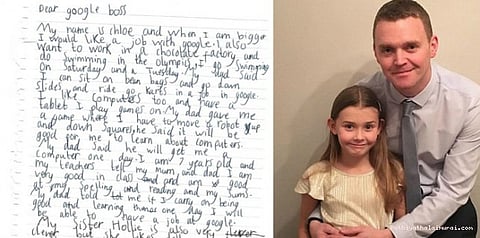 Dear google boss
My name is chloe and when I am bigger
I would like a job with google. I also
want to work in a chocolate factory and
do swimming in the olympics. I go swimming
on Saturday and a Tuesday. My dad said
I can sit on bean bags and go down
slides and ride go karts in a job in google.
I like computers too and have a
tablet I play games on. My dad gave me
a game where I have to move a robot up
and down squares, he said it will be
good for me to learn about computers.
My dad said he will get me a
computer one day. I am 7 years old and
my teachers tell my mum and dad I am
very good in class and am good
at my spelling and reading and my sums.
My dad told me if I carry on being
good and learning then one day I will
be able to have a job at google.
My sister Hollie is also very
clever but she likes